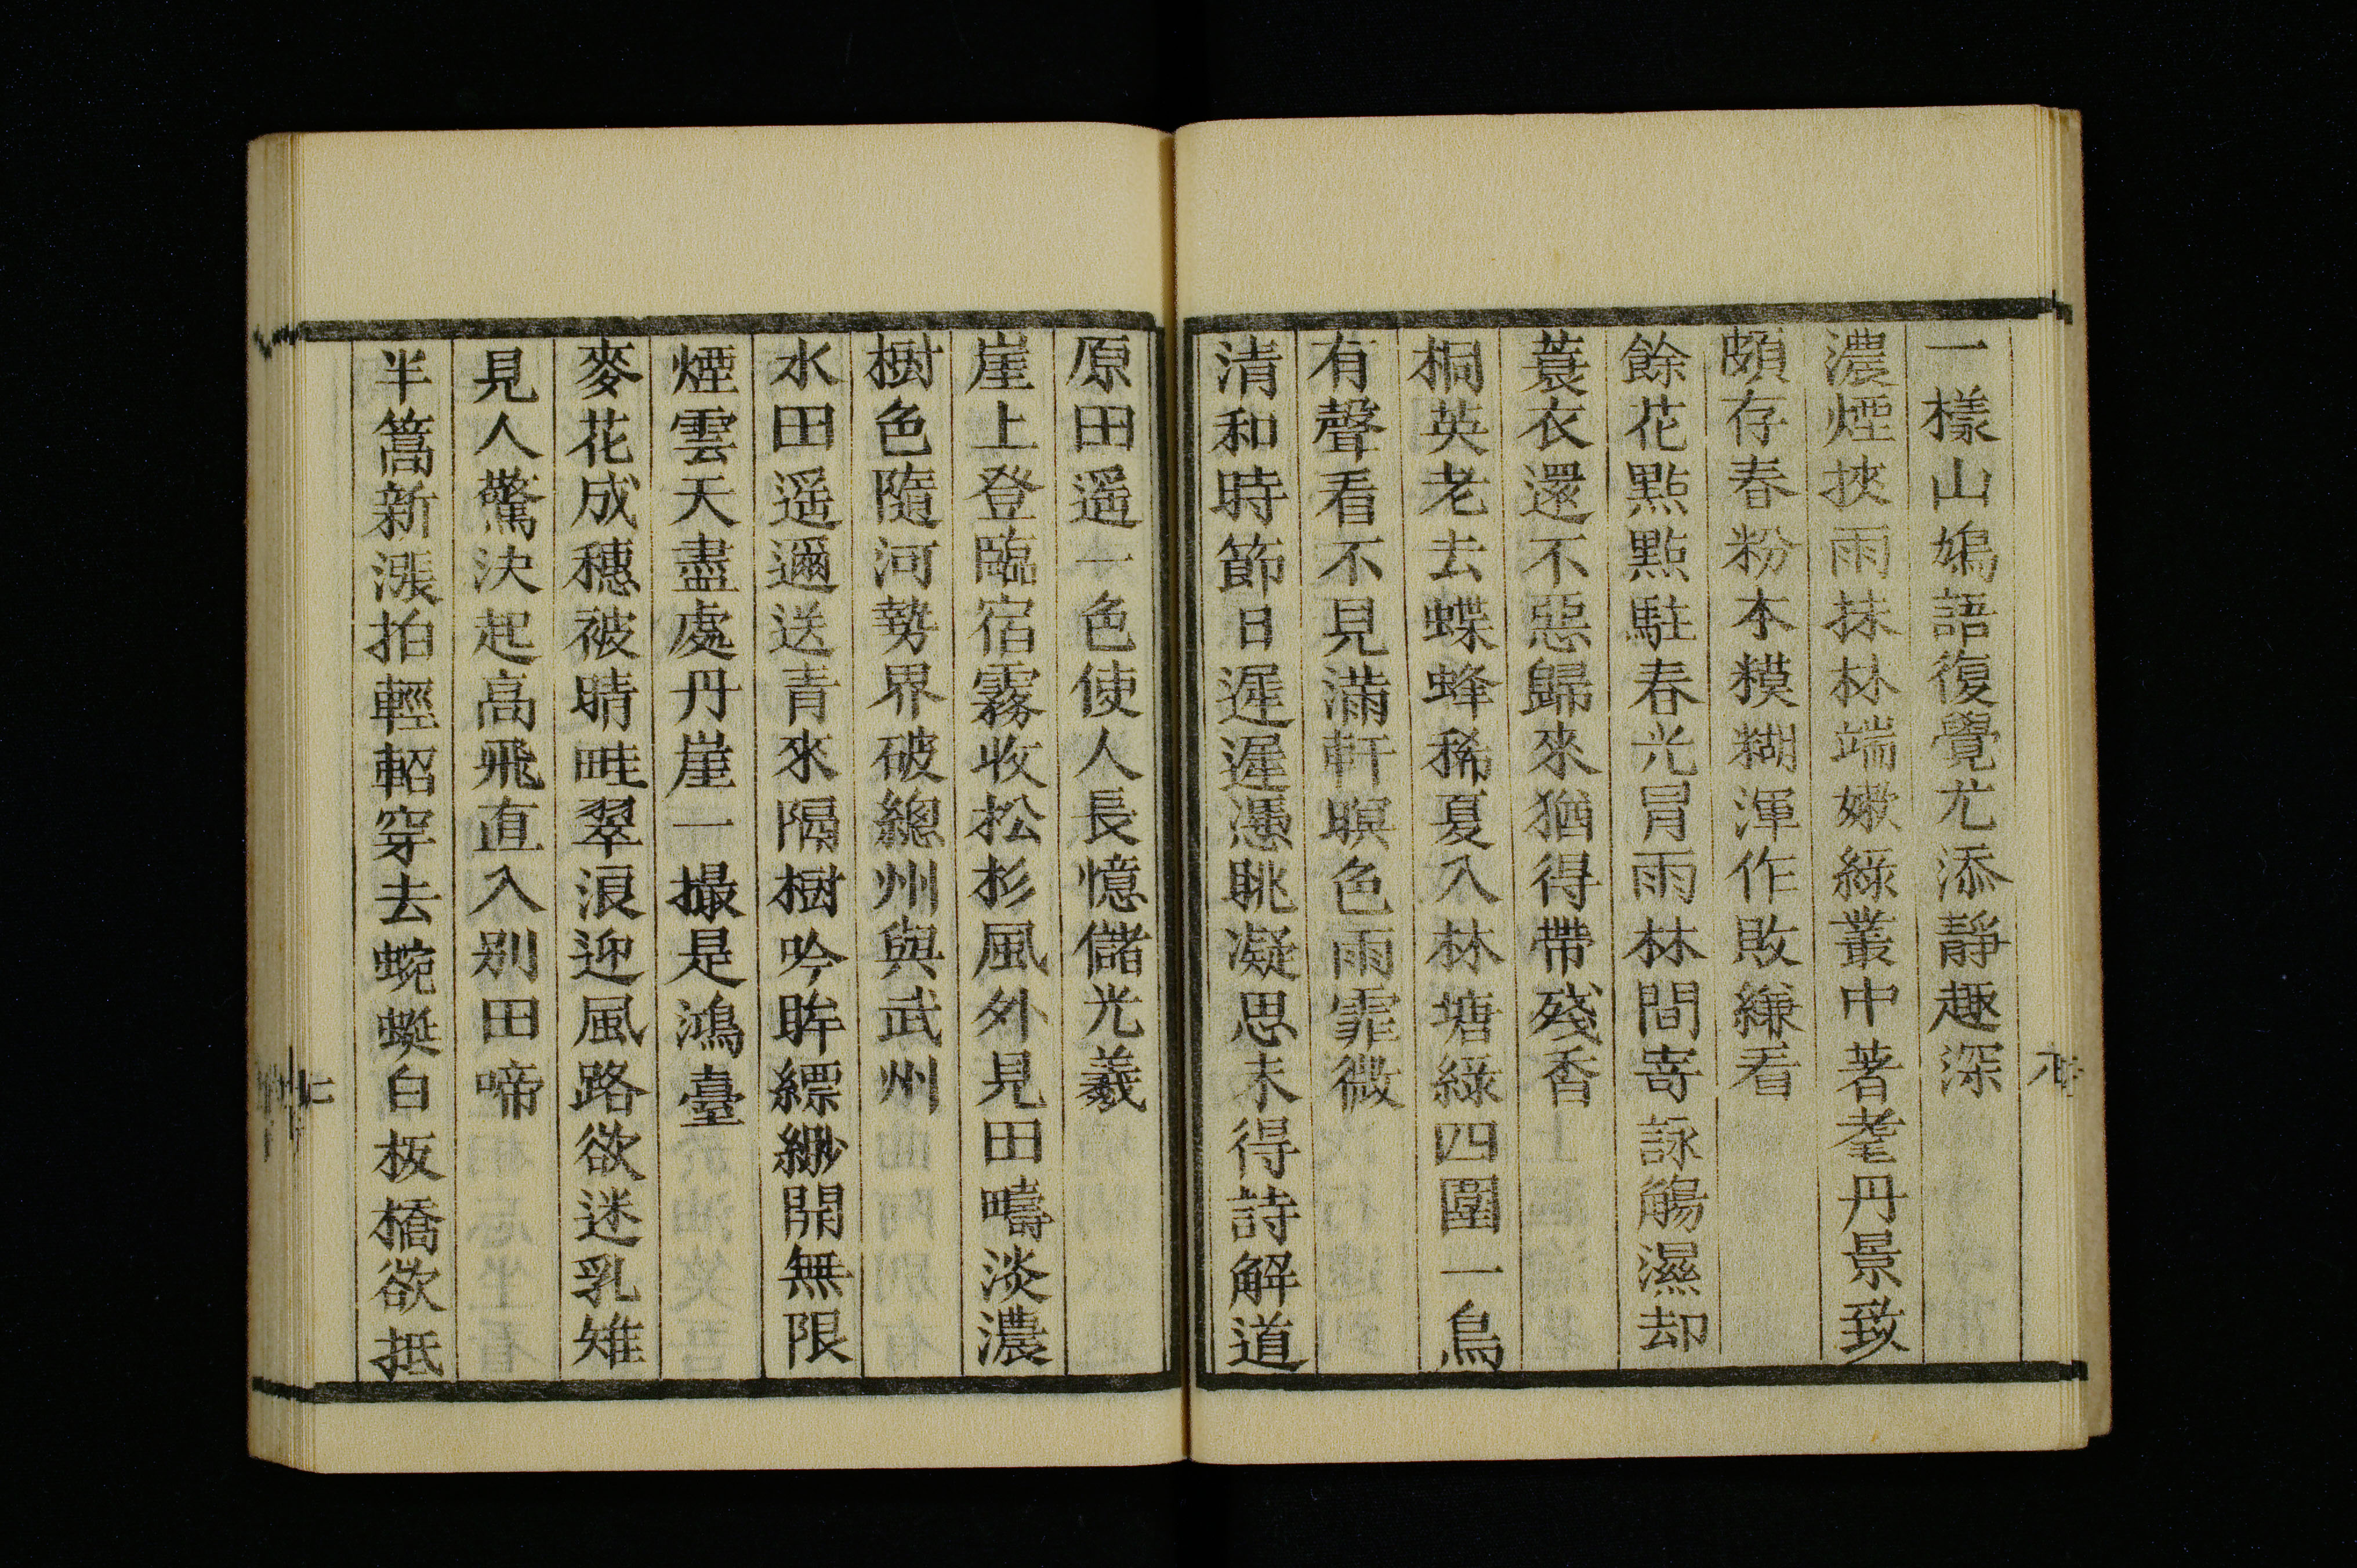 一樣山鳩語復覺尤添靜趣深
濃煙挾雨抹林端嫩綠叢中著耄丹景致
頗存春粉本糢糊渾作敗縑看
餘花點點駐春光冒雨林間寄詠觴濕却
蓑衣還不惡歸來猶得帶殘香
桐英老去蝶蜂稀夏入林塘綠四圍一鳥
有聲看不見滿軒暝色雨霏微
清和時節日遲遲憑眺凝思未得詩解道
原田遥一色使人長憶儲光羲
崖上登臨宿霧收松杉風外見田疇淡濃
樹色隨河勢界破總州與武州
水田遥邇送青來隔樹吟眸縹緲開無限
煙雲天盡處丹崖一撮是鴻臺
麥花成穗被晴畦翠浪迎風路欲迷乳雉
見人驚決起高飛直入別田啼
半篙新漲拍輕軺穿去蜿蜒白板橋欲抵